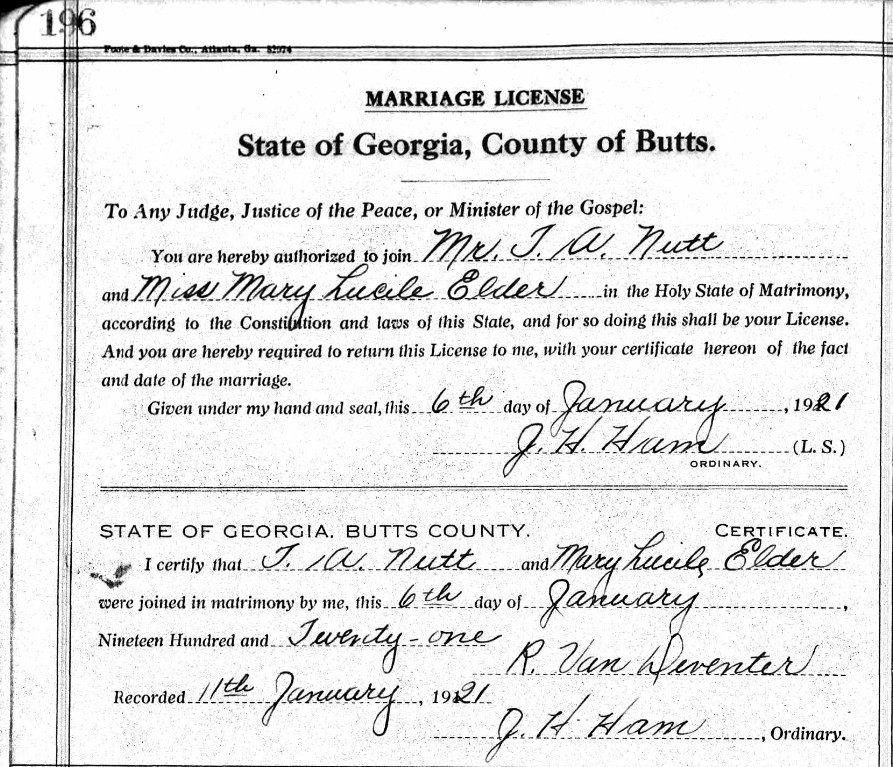 196
Foote & Davies Co., Atlanta, Ga. 82974
MARRIAGE LICENSE
State of Georgia, County of Butts.
To Any Judge, Justice of the Peace, or Minister of the Gospel:
You are hereby authorized to join Mr. T. A. Nutt
and Miss Mary Lucile Elder in the Holy State of Matrimony,
according to the Constitution and laws of this State, and for so doing this shall be your License.
And you are hereby required to return this License to me, with your certificate hereon of the fact
and date of the marriage.
Given under my hand and seal, this 6th day of January, 1921
J. H. Ham (L. S.)
ORDINARY.
STATE OF GEORGIA, BUTTS COUNTY. CERTIFICATE.
I certify that T. A. Nutt and Mary Lucile Elder
were joined in matrimony by me, this 6th day of January,
Nineteen Hundred and Twenty-one
R. Van Deventer
Recorded 11th January, 1921
J. H Ham, Ordinary.